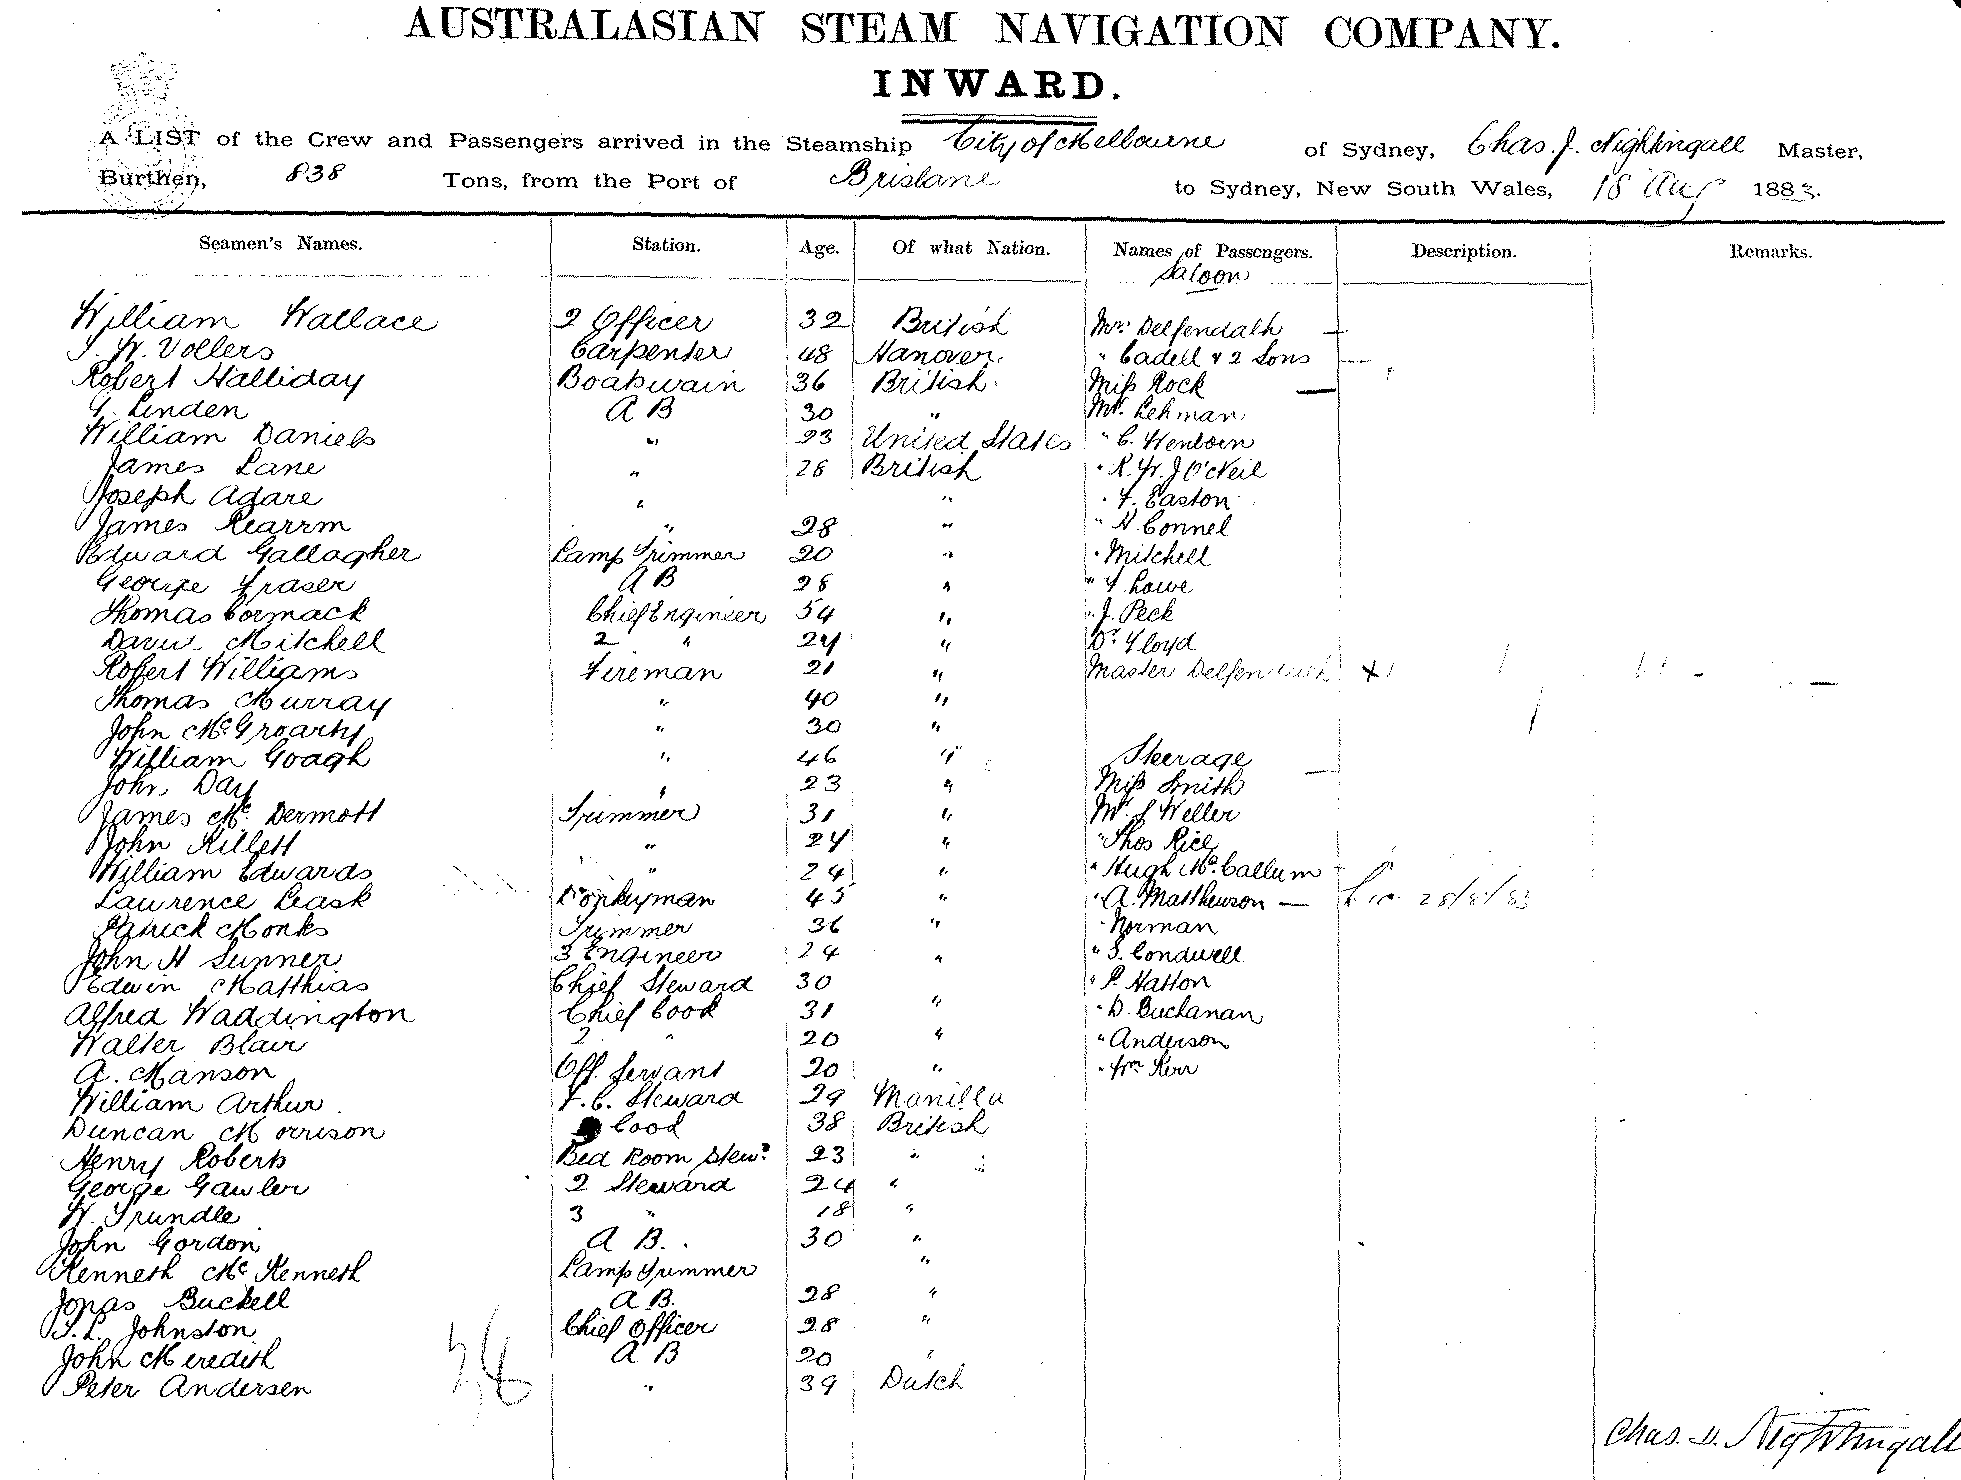 AUSTRALASIAN STEAM NAVIGATION COMPANY.
INWARD.
A LIST of the Crew and Passengers arrived in the Steamship City of Melbourne of Sydney, Chas. J. Nightingall Master,
Burthen, 838 Tons, from the Port of Brisbane to Sydney, New South Wales, 18 Aug 1883.
Seamen's Names. Station. Age. Of what Nation. Names of Passengers. Description. Remarks.
Saloon
William Wallace 2 Officer 32 British Mrs Delfendalh
J. W. Vollers Carpenter 48 Hanover " Cadell & 2 Sons
Robert Halliday Boatswain 36 British Miss Rock
G. Linden A B 30 " Mr. Lehman
William Daniels " 23 United States " C. Wentoin
James Lane " 28 British " R. W. J O'Neil
Joseph Adare " " " F. Easton
James Rearrm " 28 " " H. Connel
Edward Gallagher Lamp Trimmer 20 " " Mitchell
George Fraser A B 28 " " F Lowe
Thomas Cormack Chief Engineer 54 " " J. Peck
David Mitchell 2 " 24 " Dr Floyd
Robert Williams Fireman 21 " Master Delfendalh
Thomas Murray " 40 "
John McGroarty " 30 "
William Goagh " 46 " Steerage
John Day " 23 " Miss Smith
James Mc Dermott Trimmer 31 " Mr S Weller
John Killett " 24 " " Thos Rice
William Edwards " 24 " " Hugh McCallum
Laurence Leask Donkeyman 45 " " A. Matthewson
Patrick Monks Trimmer 36 " " Norman
John H Sunner 3 Engineer 24 " " S. Condwell
Edwin Matthias Chief Steward 30 " P. Hatton
Alfred Waddington Chief Cook 31 " " D. Buchanan
Walter Blair 2 " 20 " " Anderson
A. Manson Off. Servant 20 " " Wm Kerr
William Arthur F. C. Steward 29 Manilla
Duncan Morrison Cook 38 British
Henry Roberts Bed Room Stewd 23 "
George Gawler 2 Steward 24 "
W. Trundle 3 " 18 "
John Gordon A B. 30 "
Kenneth Mc Kenneth Lamp Trimmer "
Jonas Buckell A B. 28 "
J. L. Johnston Chief Officer 28 "
John Meredith A B 20 "
Peter Andersen " 39 Dutch
Chas. J. Nightingall